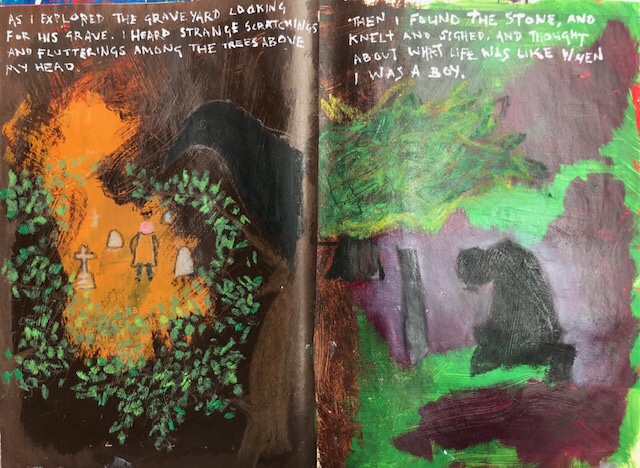 AS I EXPLORED THE GRAVEYARD LOOKING
FOR HIS GRAVE. I HEARD STRANGE SCRATCHINGS
AND FLUTTERINGS AMONG THE TREES ABOVE
MY HEAD.
THEN I FOUND THE STONE, AND
KNELT AND SIGHED, AND THOUGHT
ABOUT WHAT LIFE WAS LIKE WHEN
I WAS A BOY.